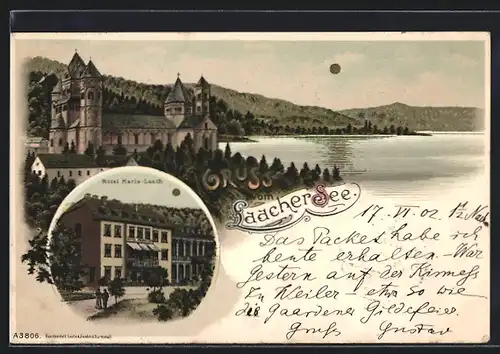 Hotel Maria-Laach
GRUSS
vom
LAACHER SEE.
17. VI. 02 1/2 Nach
Das Packet habe ich
heute erhalten – War
gestern auf der Kirmess
in Weiler – etwa so wie
die Gaardener Gildefeier.
Gruss Gustav
A3806.